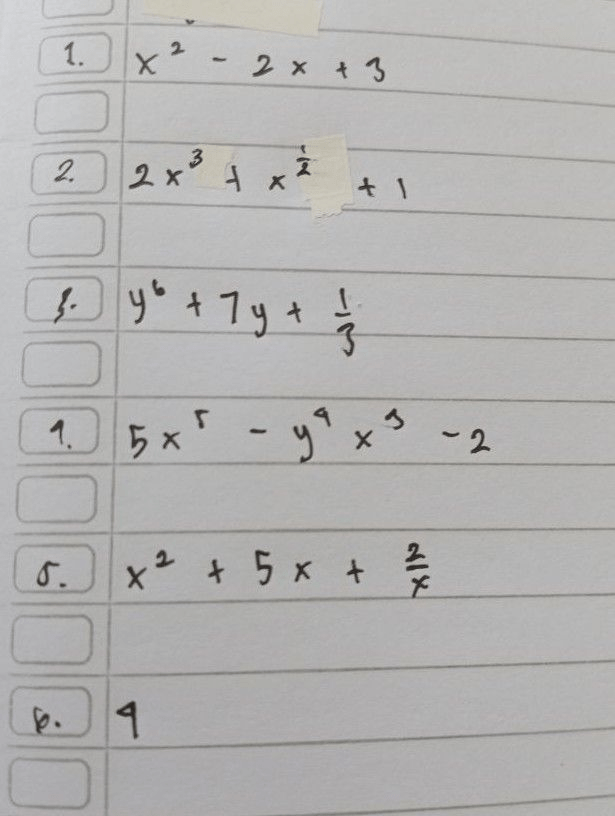 1. x² - 2x + 3
2. 2x³ + x^½ + 1
3. y⁶ + 7y + 1/3
4. 5x⁵ - y⁴x³ - 2
5. x² + 5x + 2/x
6. 4